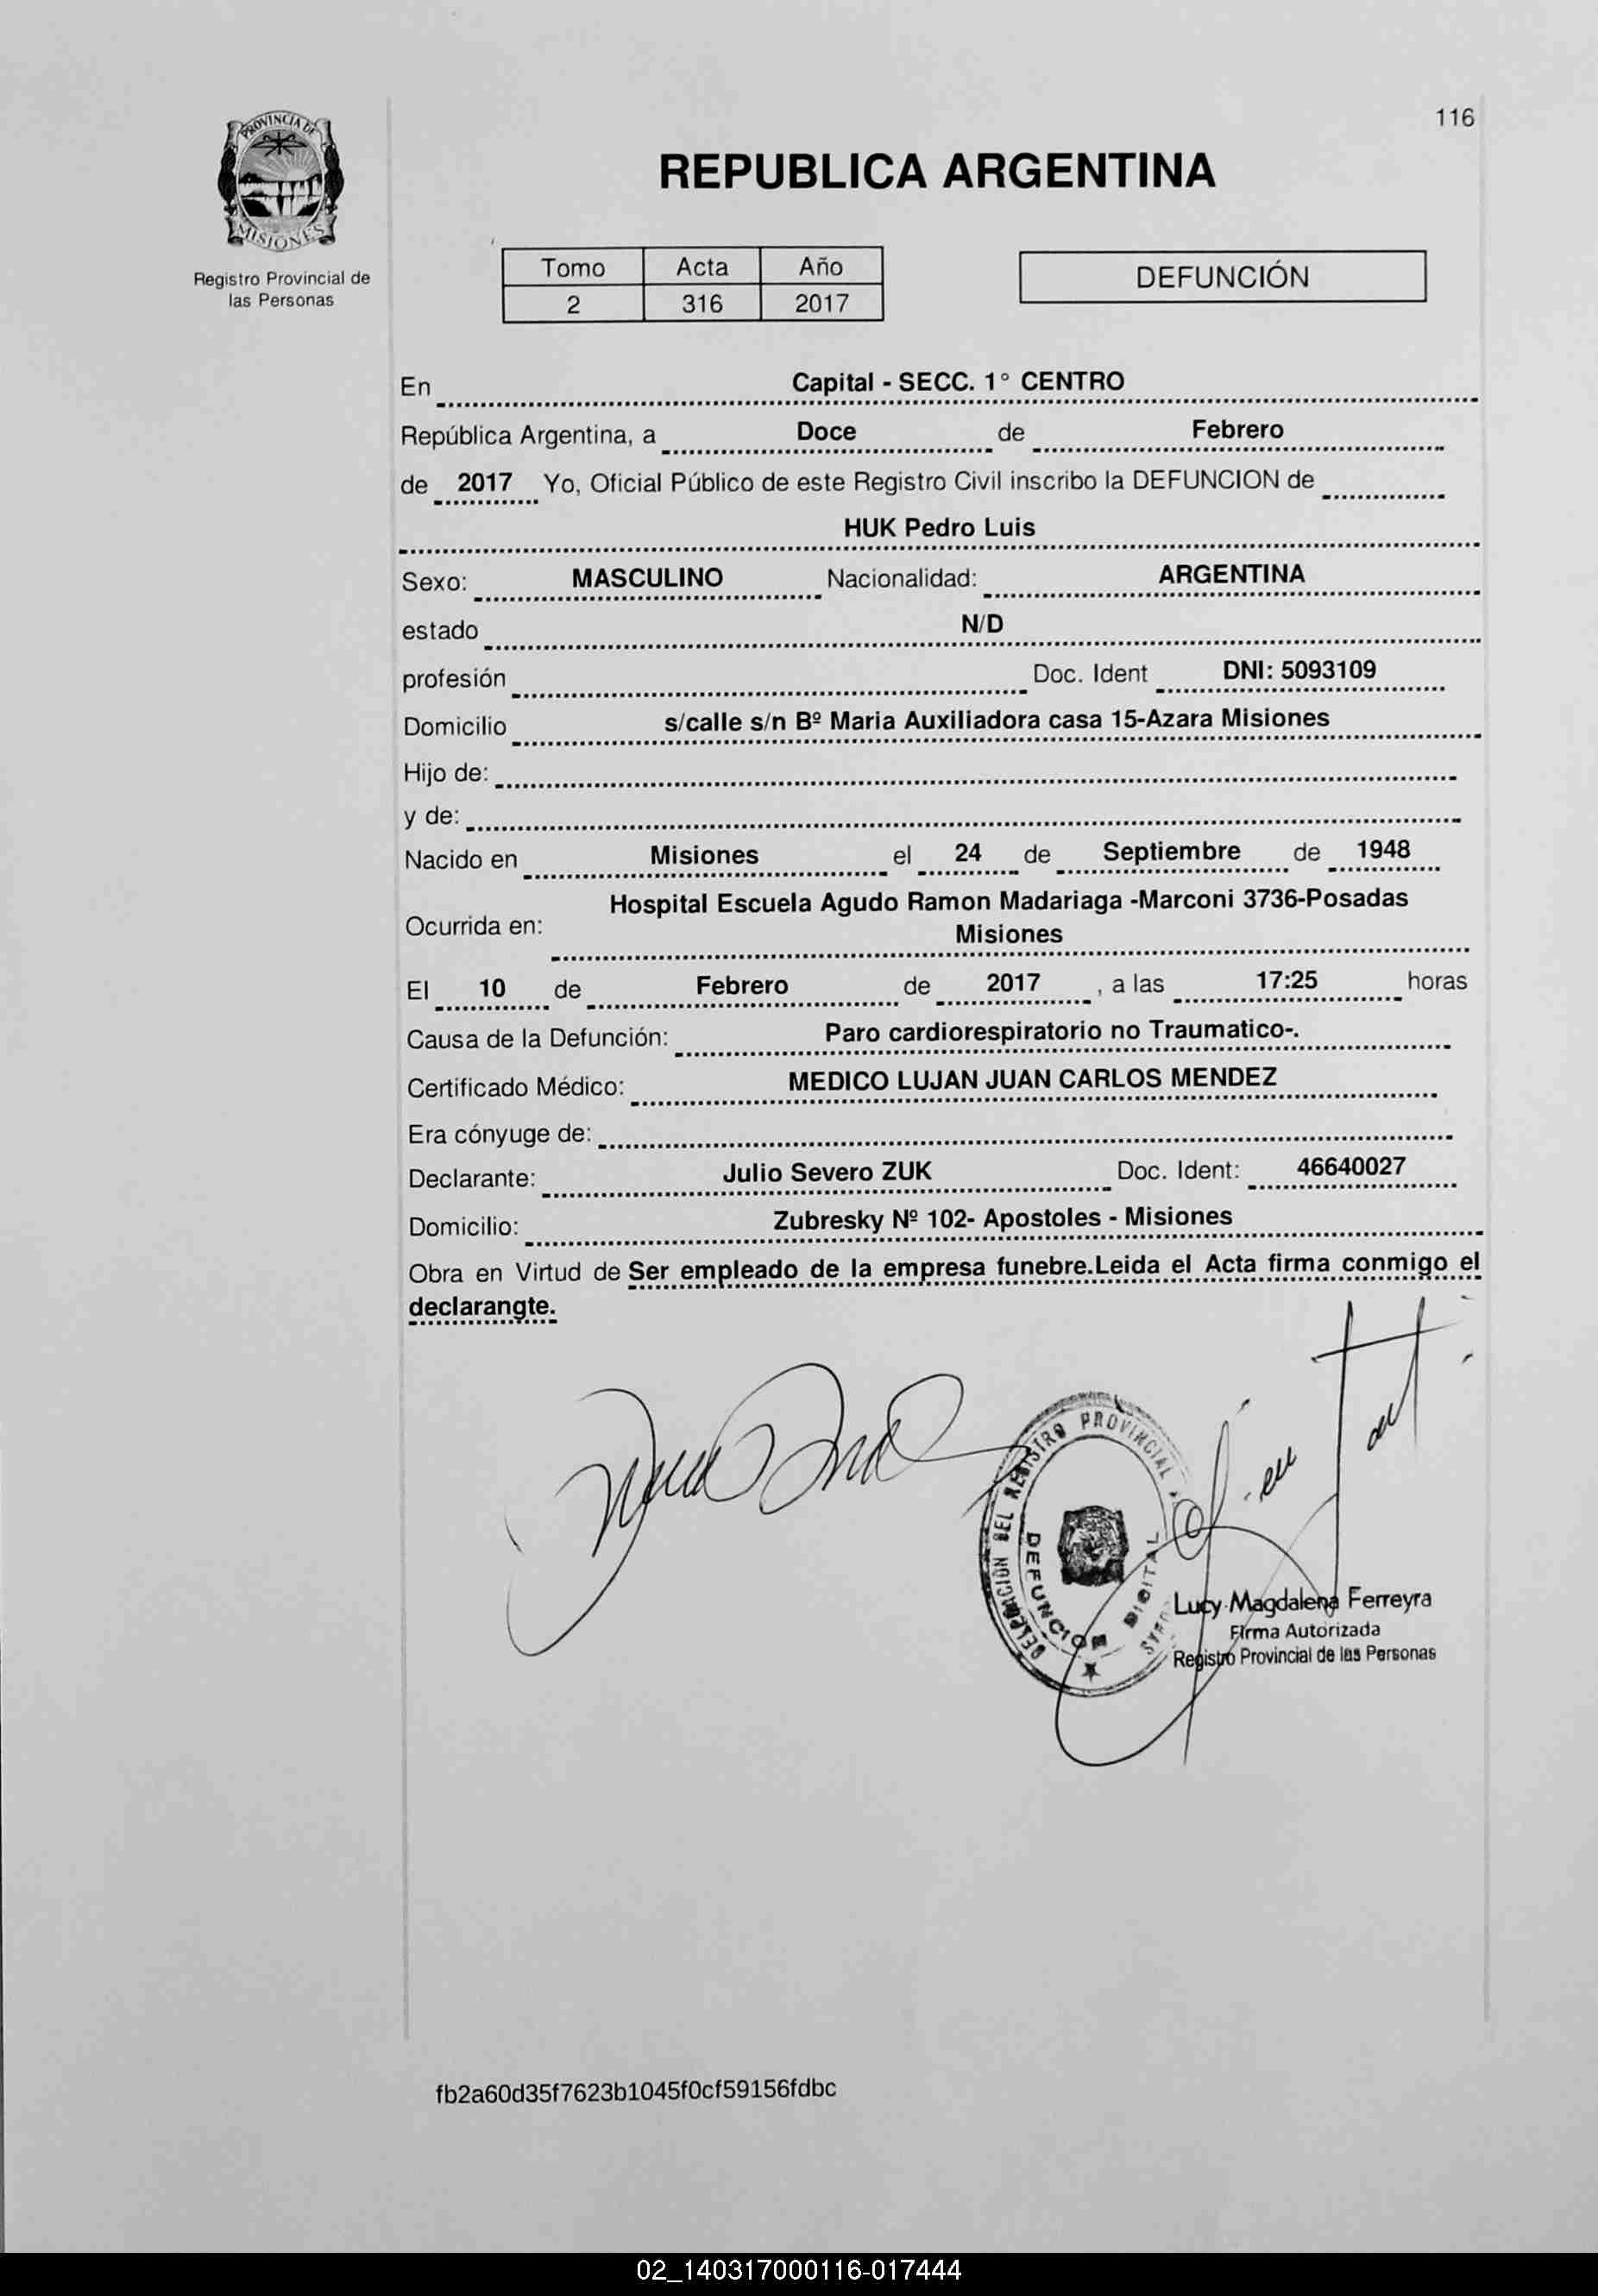 116
PROVINCIA DE
MISIONES
Registro Provincial de
las Personas
REPUBLICA ARGENTINA
Tomo Acta Año
2 316 2017
DEFUNCIÓN
En Capital - SECC. 1° CENTRO
República Argentina, a Doce de Febrero
de 2017 Yo, Oficial Público de este Registro Civil inscribo la DEFUNCION de
HUK Pedro Luis
Sexo: MASCULINO Nacionalidad: ARGENTINA
estado N/D
profesión Doc. Ident DNI: 5093109
Domicilio s/calle s/n Bº Maria Auxiliadora casa 15-Azara Misiones
Hijo de:
y de:
Nacido en Misiones el 24 de Septiembre de 1948
Ocurrida en: Hospital Escuela Agudo Ramon Madariaga -Marconi 3736-Posadas
Misiones
El 10 de Febrero de 2017 , a las 17:25 horas
Causa de la Defunción: Paro cardiorespiratorio no Traumatico-.
Certificado Médico: MEDICO LUJAN JUAN CARLOS MENDEZ
Era cónyuge de:
Declarante: Julio Severo ZUK Doc. Ident: 46640027
Domicilio: Zubresky Nº 102- Apostoles - Misiones
Obra en Virtud de Ser empleado de la empresa funebre.Leida el Acta firma conmigo el
declarangte.
DEL REGISTRO PROVINCIAL
DEFUNCION DIGITAL
Lucy Magdalena Ferreyra
Firma Autorizada
Registro Provincial de las Personas
fb2a60d35f7623b1045f0cf59156fdbc
02_140317000116-017444